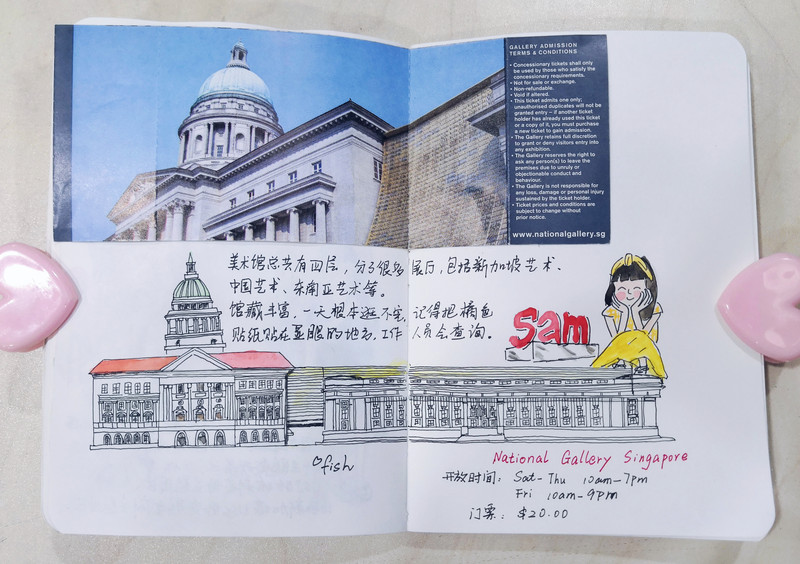 GALLERY ADMISSION
TERMS & CONDITIONS
• Concessionary tickets shall only
be used by those who satisfy the
concessionary requirements.
• Not for sale or exchange.
• Non-refundable.
• Void if altered.
• This ticket admits one only;
unauthorised duplicates will not be
granted entry – if another ticket
holder has already used this ticket
or a copy of it, you must purchase
a new ticket to gain admission.
• The Gallery retains full discretion
to grant or deny visitors entry into
any exhibition.
• The Gallery reserves the right to
ask any person(s) to leave the
premises due to unruly or
objectionable conduct and
behaviour.
• The Gallery is not responsible for
any loss, damage or personal injury
sustained by the ticket holder.
• Ticket prices and conditions are
subject to change without
prior notice.
www.nationalgallery.sg
美术馆总共有四层，分了很多展厅，包括新加坡艺术、
中国艺术、东南亚艺术等。
馆藏丰富，一天根本逛不完，记得把橘色
贴纸贴在显眼的地方，工作人员会查询。
sam
fish
National Gallery Singapore
开放时间：Sat-Thu 10am-7pm
Fri 10am-9pm
门票：$20.00